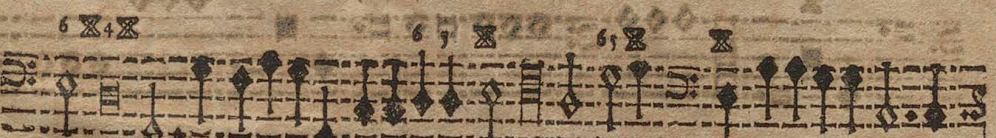 6 ※4※ 6 5 ※ 6 5 ※ ※